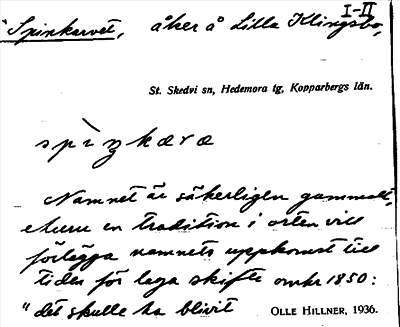 I-II
Spinkarvet, åker å Lilla Klingsbo,
St. Skedvi sn, Hedemora tg, Kopparbergs län.
Namnet är säkerligen gammalt,
ehuru en tradition i orten vill
förlägga namnets uppkomst till
tiden för laga skifte omkr 1850:
"det skulle ha blivit
OLLE HILLNER, 1936.